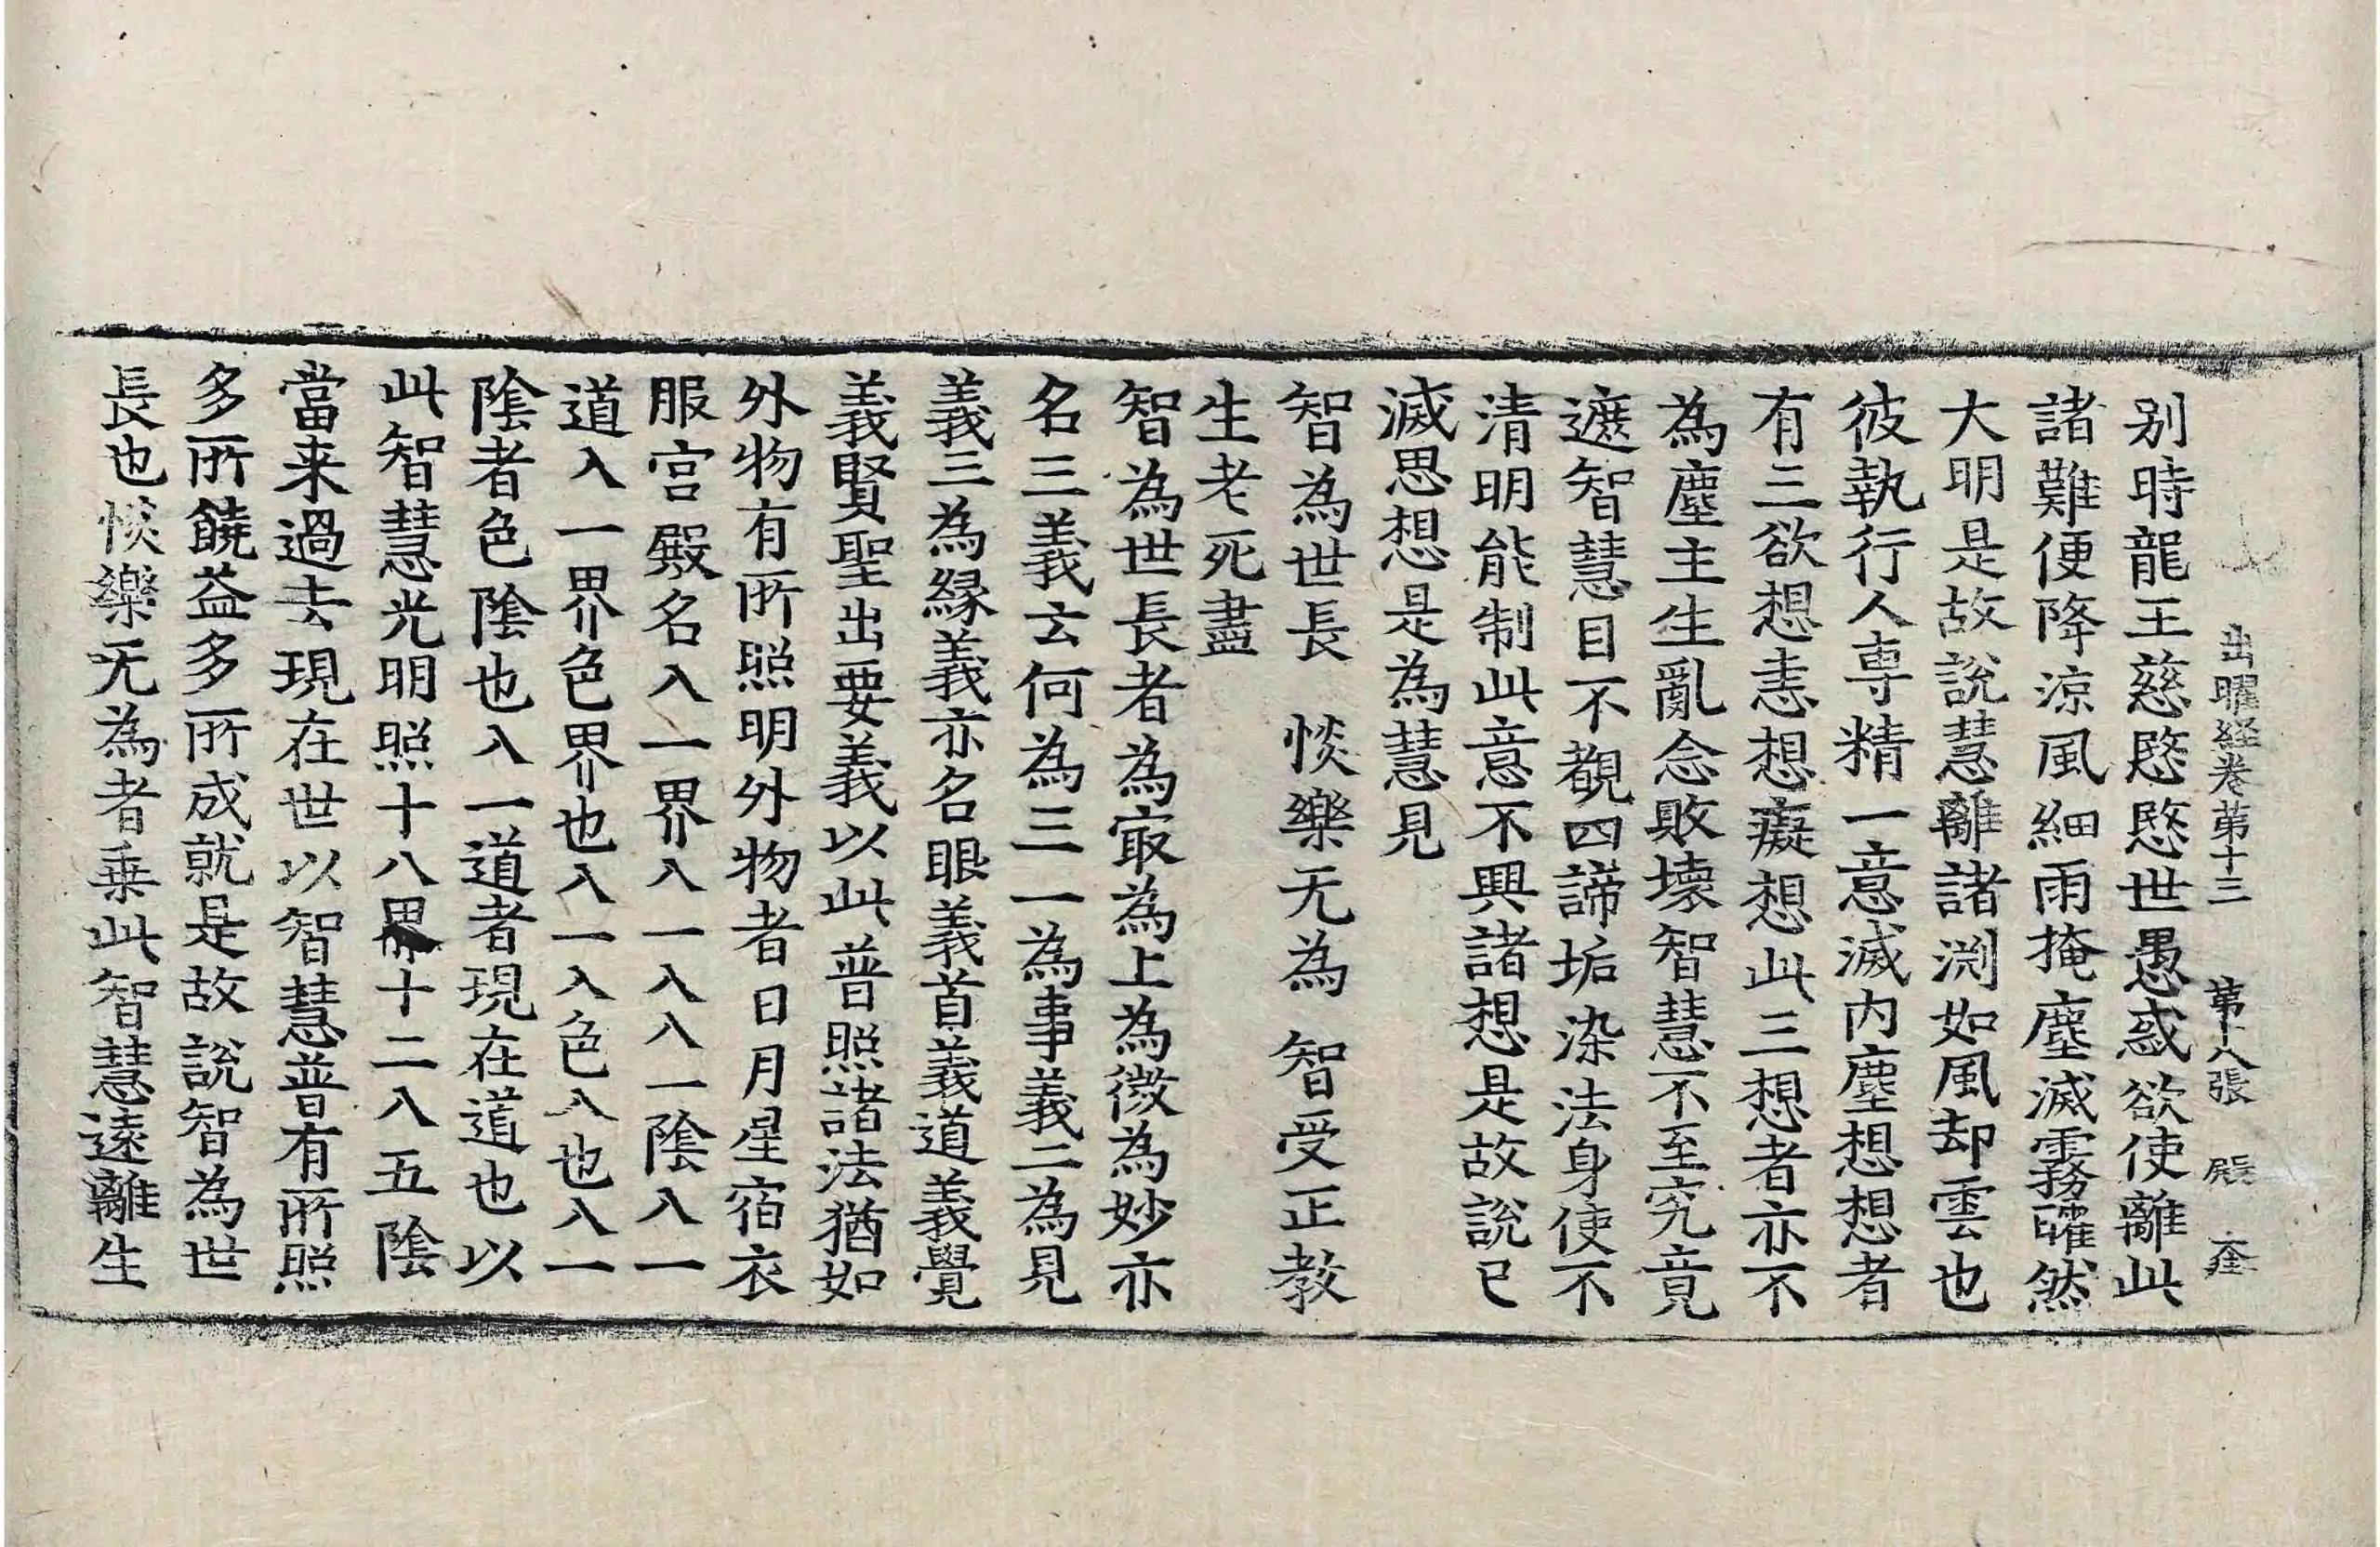 出曜経卷第十三 第十八張 殿 奎
别時龍王慈愍愍世愚惑欲使離此
諸難便降涼風細雨掩塵滅霧曤然
大明是故說慧離諸渕如風却雲也
彼執行人専精一意滅内塵想想者
有三欲想恚想癡想此三想者亦不
為塵主生亂念敗壊智慧不至究竟
遮智慧目不覩四諦垢染法身使不
清明能制此意不興諸想是故說已
滅思想是為慧見
智為世長 惔樂无為 智受正教
生老死盡
智為世長者為㝡為上為微為妙亦
名三義云何為三一為事義二為見
義三為縁義亦名眼義首義道義覺
義賢聖出要義以此普照諸法猶如
外物有所照明外物者日月星宿衣
服宮殿名入一界入一入入一陰入一
道入一界色界也入一入色入也入一
陰者色陰也入一道者現在道也以
此智慧光明照十八界十二入五陰
當来過去現在世以智慧普有所照
多所饒益多所成就是故說智為世
長也惔樂无為者乗此智慧遠離生